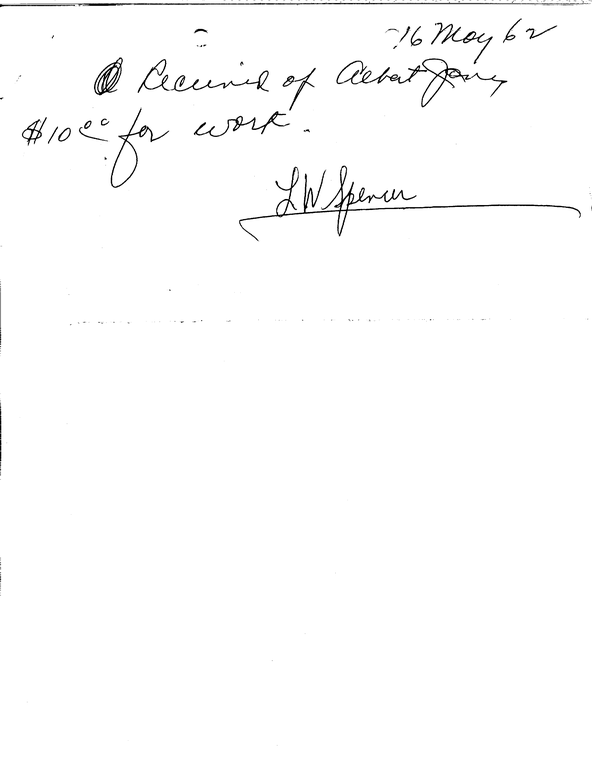 16 May 62
Received of Albert Jones
$10.00 for work.
L W Spencer